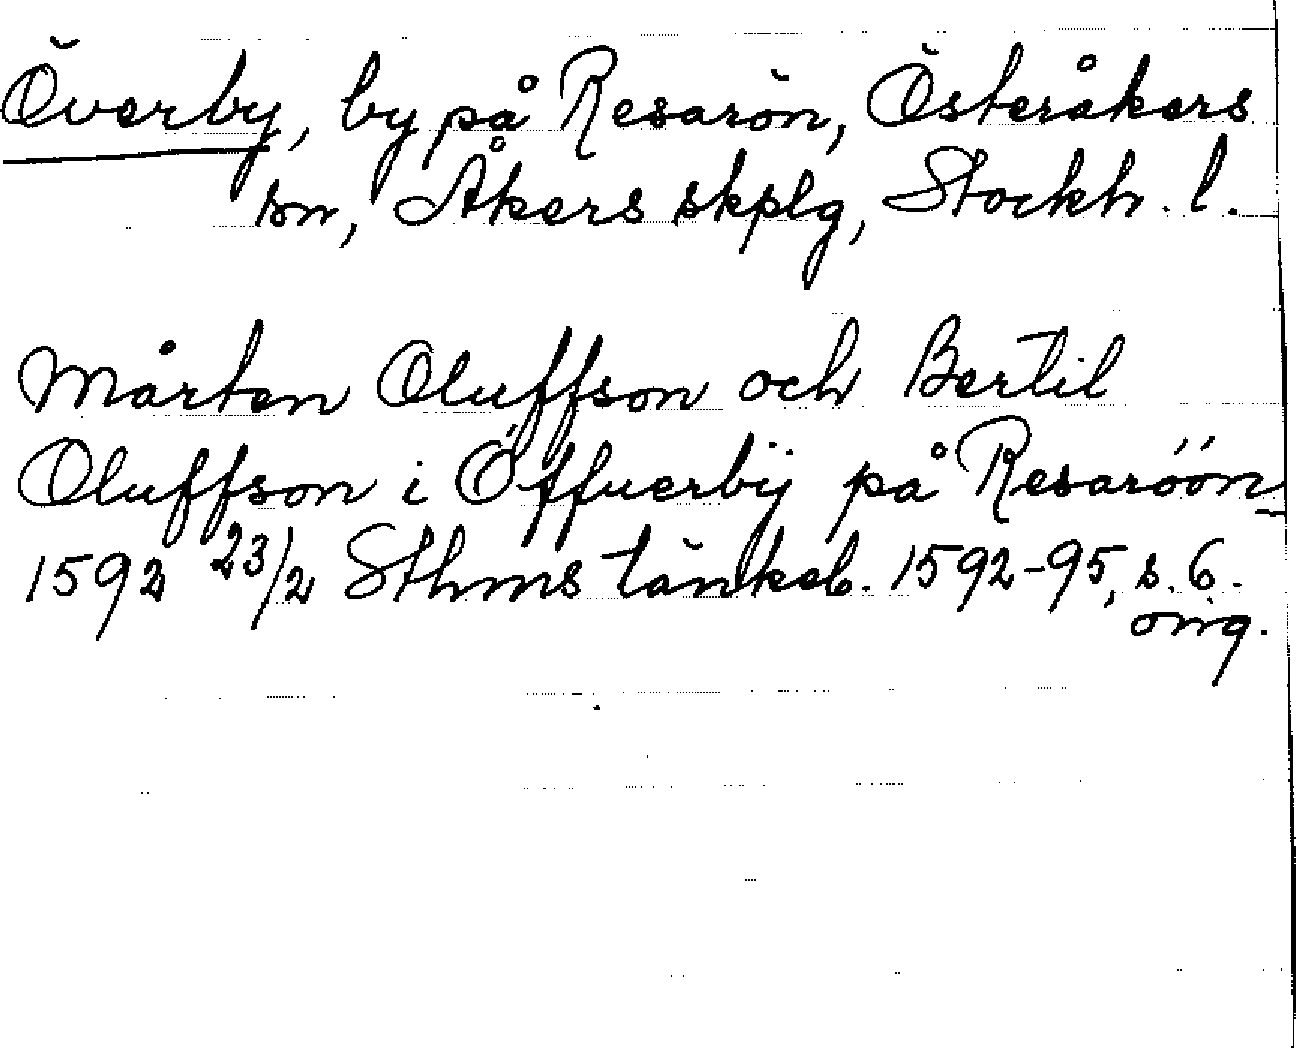 Överby, by på Resarön, Österåkers
sn, Åkers skplg, Stockh. l.
Mårten Oluffson och Bertil
Oluffson i Öffuerbÿ på Resaröön
1592 23/2 Sthms tänkeb. 1592-95, s. 6.
orig.